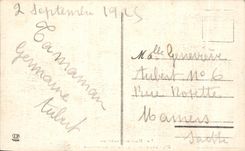 2 Septembre 19
Ta maman
Germaine
Aubert
Mlle Geneviève
Aubert No 6
Rue
Mamers
Sarthe